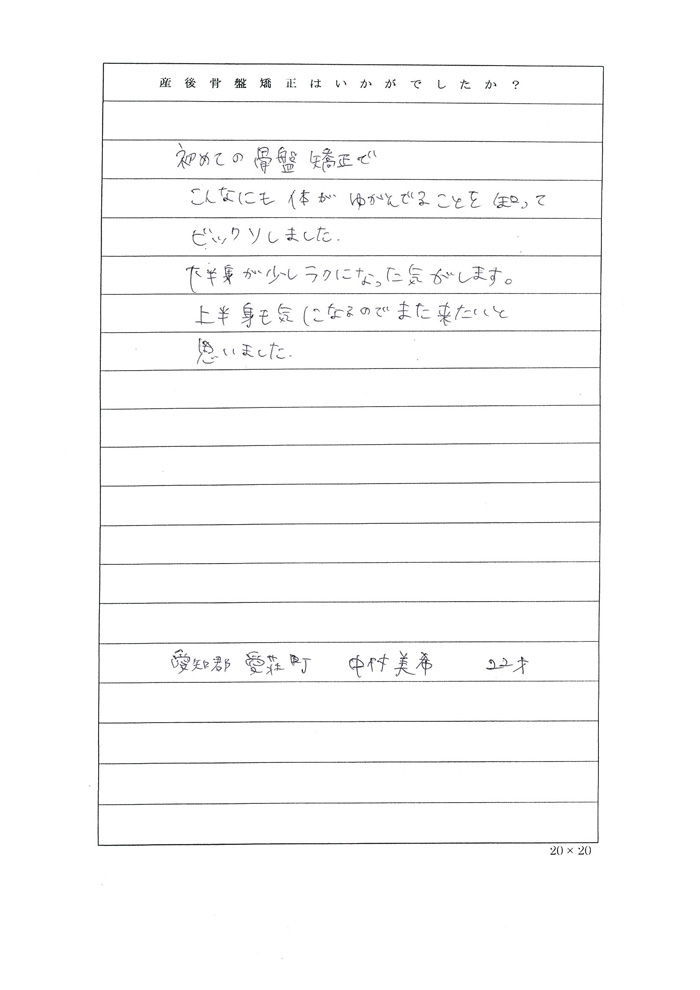 産後骨盤矯正はいかがでしたか？
初めての骨盤矯正で
こんなにも体がゆがんでることを知って
ビックリしました.
下半身が少しラクになった気がします。
上半身も気になるのでまた来たいと
思いました.
愛知郡 愛荘町 中村美希 22才
20×20